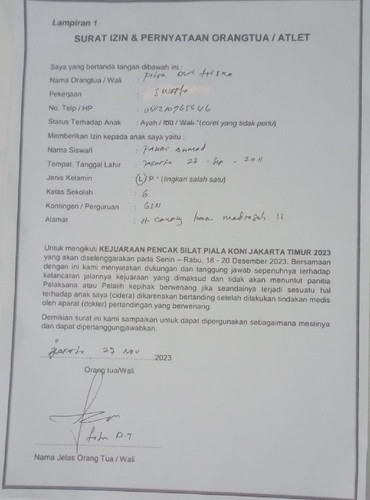 Lampiran 1
SURAT IZIN & PERNYATAAN ORANGTUA / ATLET
Saya yang bertanda tangan dibawah ini :
Nama Orangtua / Wali :
Pekerjaan : Swasta
No. Telp / HP :
Status Terhadap Anak : Ayah / Ibu / Wali *(coret yang tidak perlu)
Memberikan Izin kepada anak saya yaitu :
Nama Siswa/i : Ahmad
Tempat, Tanggal Lahir : Jakarta 23 - - 2011
Jenis Kelamin : L P * (lingkari salah satu)
Kelas Sekolah : 6
Kontingen / Perguruan :
Alamat :
Untuk mengikuti KEJUARAAN PENCAK SILAT PIALA KONI JAKARTA TIMUR 2023
yang akan diselenggarakan pada Senin – Rabu, 18 - 20 Desember 2023. Bersamaan
dengan ini kami menyatakan dukungan dan tanggung jawab sepenuhnya terhadap
kelancaran jalannya kejuaraan yang dimaksud dan tidak akan menuntut panitia
Pelaksana atau Pelatih kepihak berwenang jika seandainya terjadi sesuatu hal
terhadap anak saya (cidera) dikarenakan bertanding setelah dilakukan tindakan medis
oleh aparat (dokter) pertandingan yang berwenang.
Demikian surat ini kami sampaikan untuk dapat dipergunakan sebagaimana mestinya
dan dapat dipertanggungjawabkan.
Jakarta, 27 Nov 2023
Orang tua/Wali
Nama Jelas Orang Tua / Wali